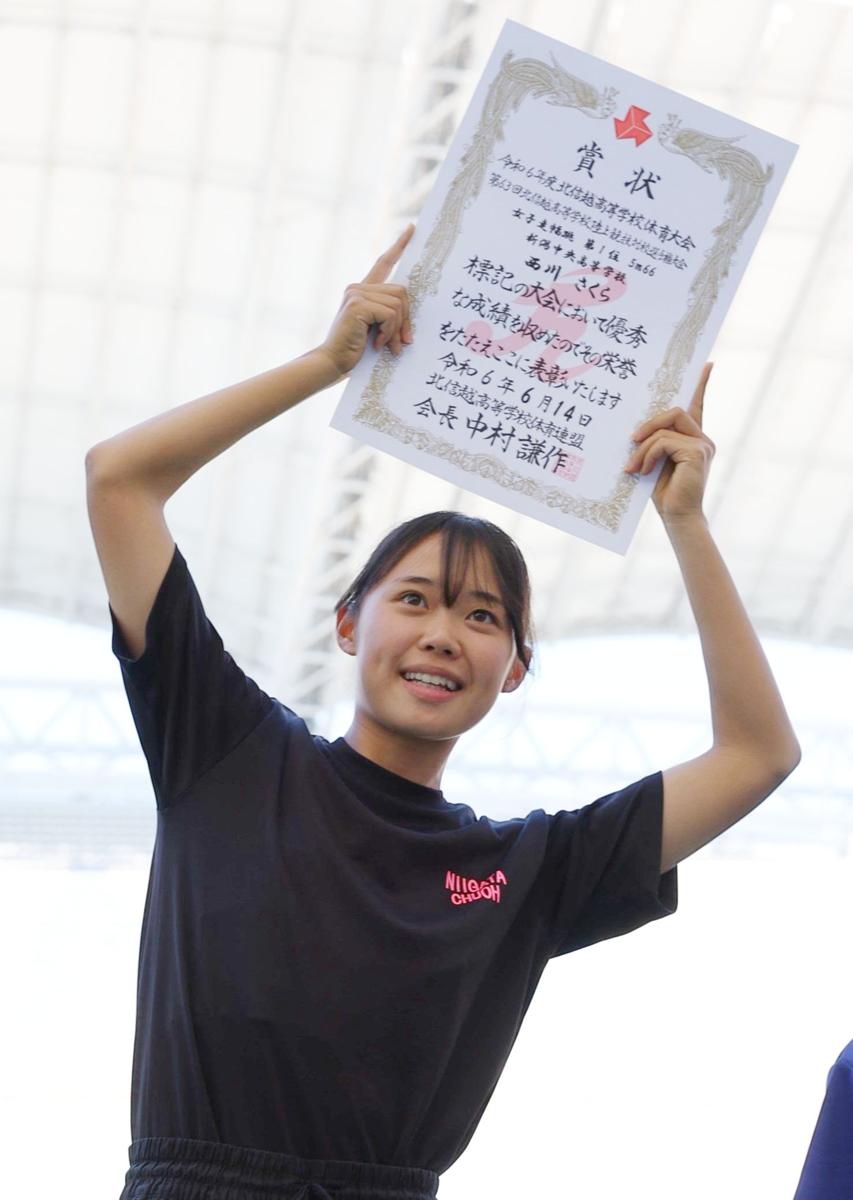 賞状
令和6年度北信越高等学校体育大会
第63回北信越高等学校陸上競技対校選手権大会
女子走幅跳 第1位 5m66
新潟中央高等学校
西川 さくら
標記の大会において優秀
な成績を収めたのでその栄誉
をたたえここに表彰いたします
令和6年6月14日
北信越高等学校体育連盟
会長 中村謙作
NIIGATA
CHUOH